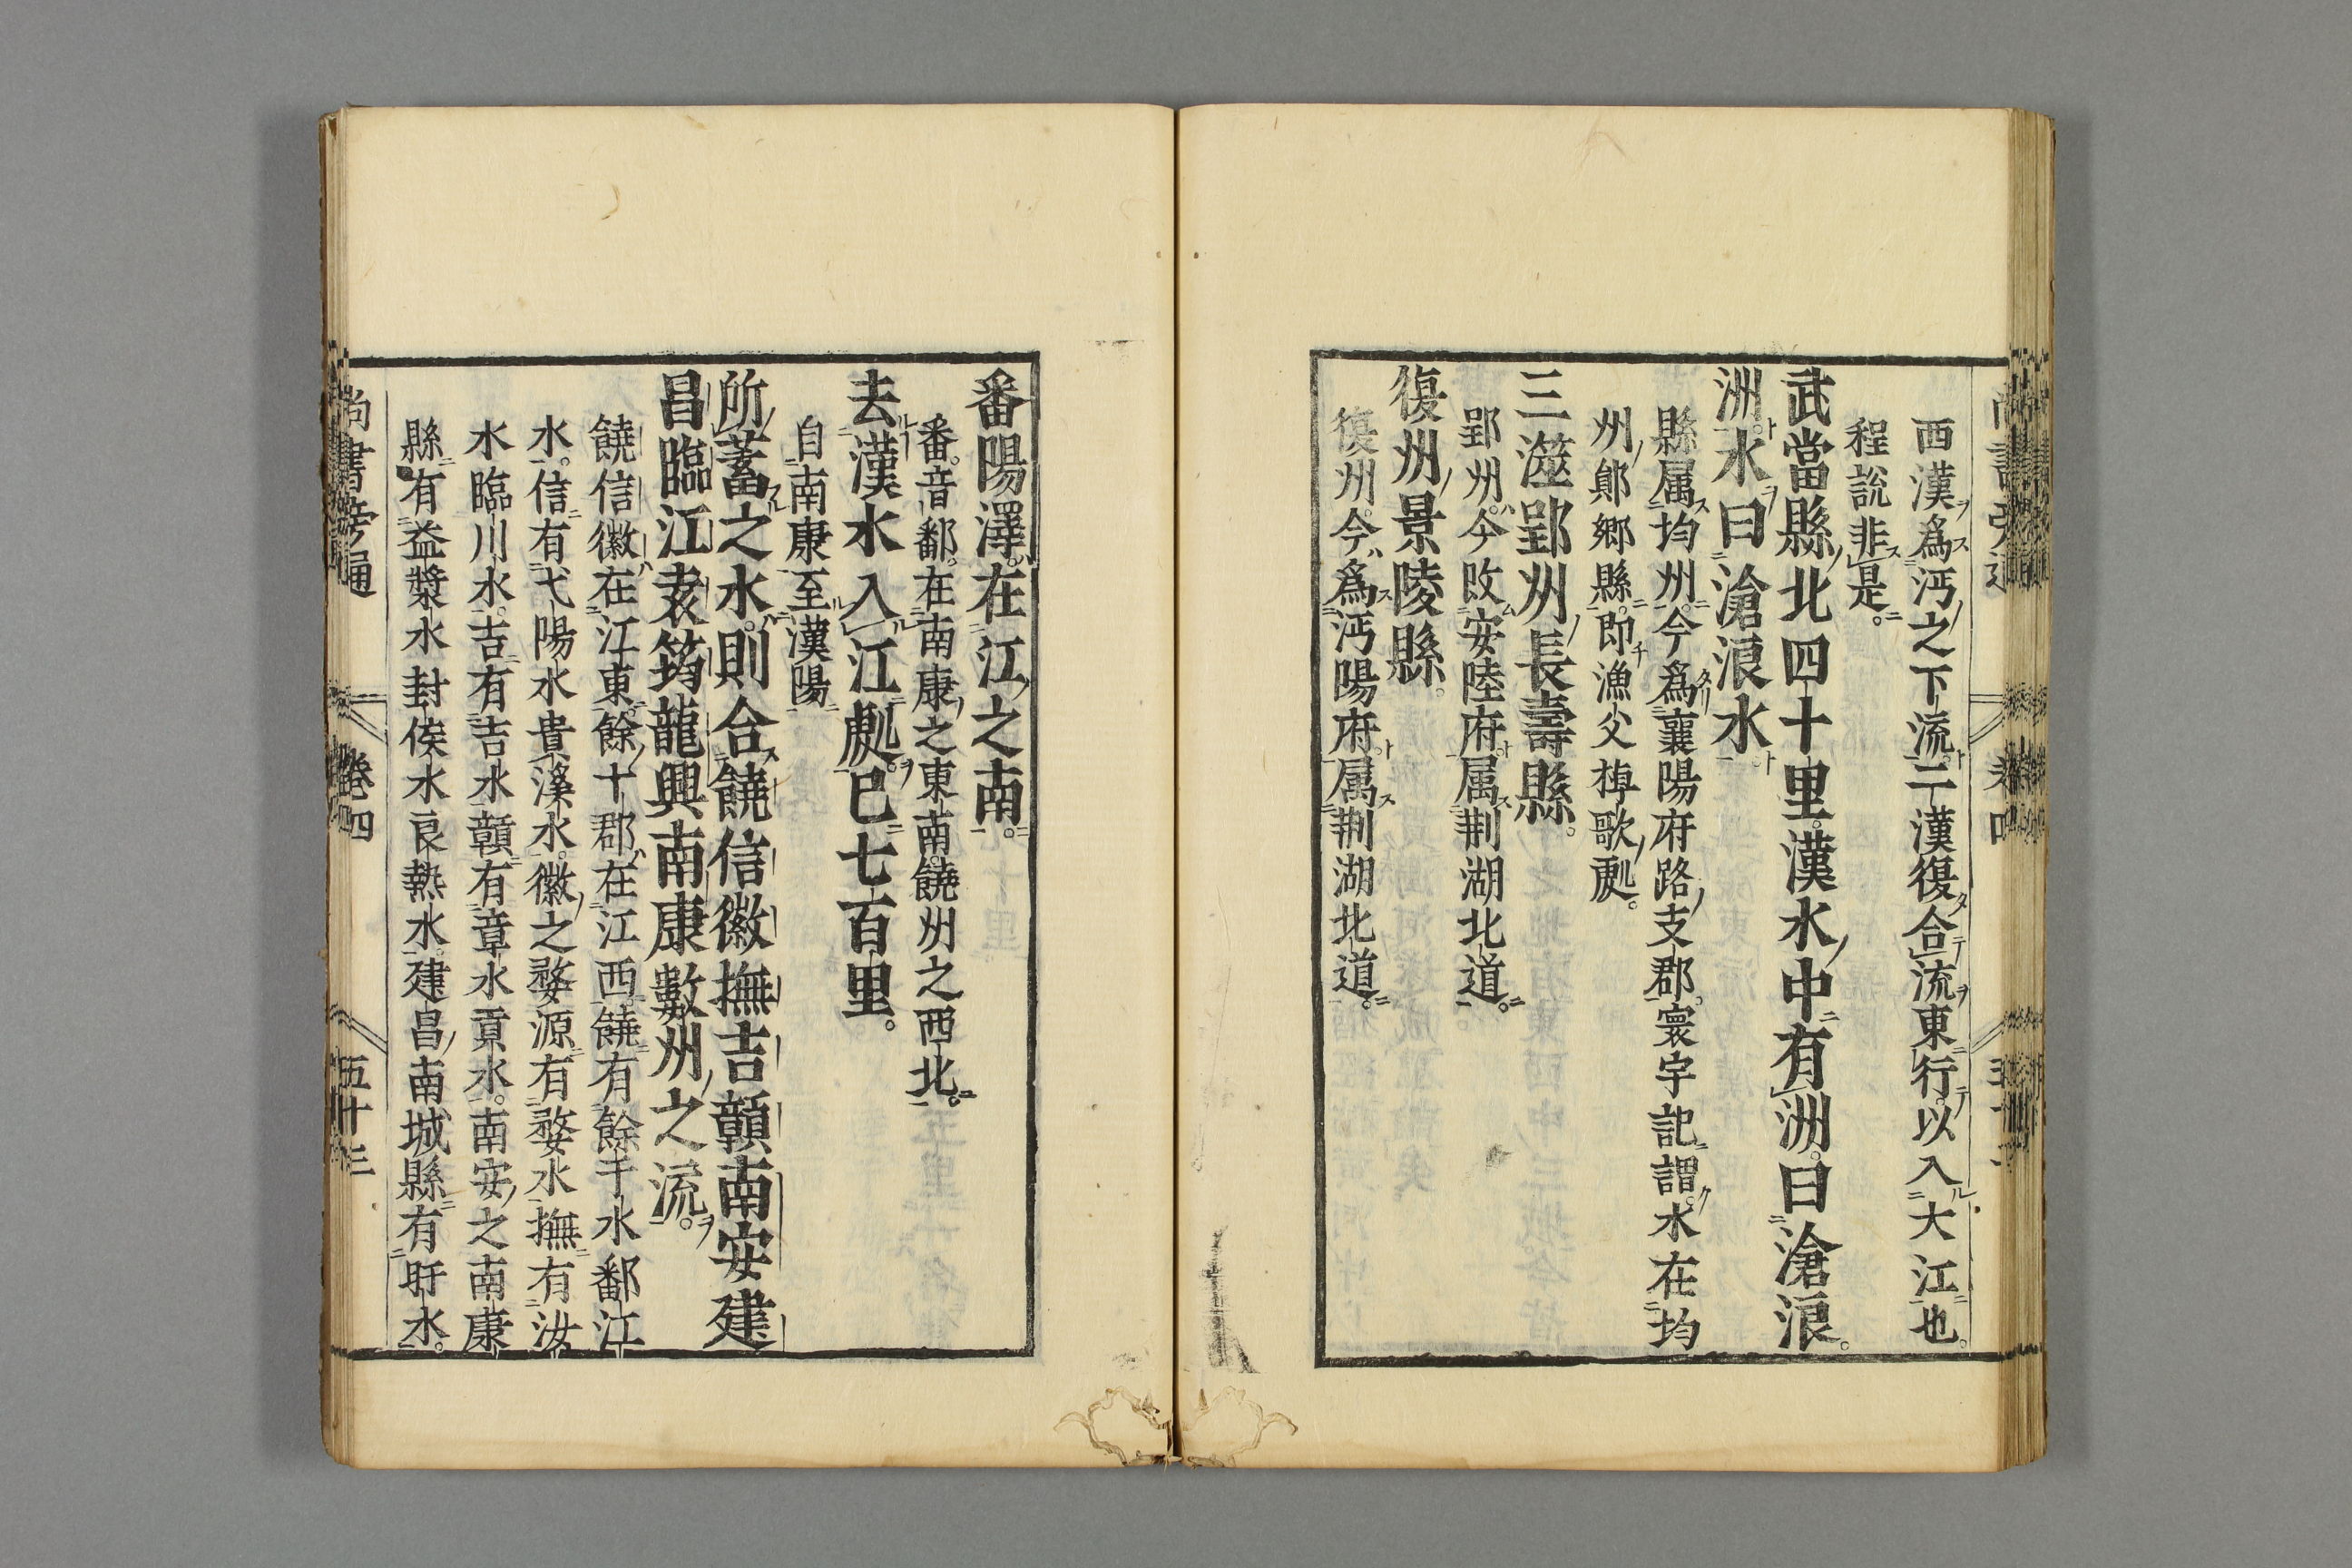 西漢爲沔之下流二漢復合流東行以入大江也
程說非是
武當縣北四十里漢水中有洲曰滄浪
洲水曰滄浪水
縣属均州今爲襄陽府路支郡寰宇記謂水在均
州鄖郷縣即漁父棹歌䖏
三澨郢州長壽縣
郢州今改安陸府属荆湖北道
復州景陵縣
復州今爲沔陽府属荆湖北道
番陽澤在江之南
番音鄱在南康之東南饒州之西北
去漢水入江䖏巳七百里
自南康至漢陽
所蓄之水則合饒信徽撫吉贑南安建
昌臨江袁筠龍興南康數州之流
饒信徽在江東餘十郡在江西饒有餘干水鄱江
水信有弋陽水貴溪水徽之婺源有婺水撫有汝
水臨川水吉有吉水贑有章水貢水南安之南康
縣有益漿水封侯水良熱水建昌南城縣有盱水
尚書旁通 卷四 五十三